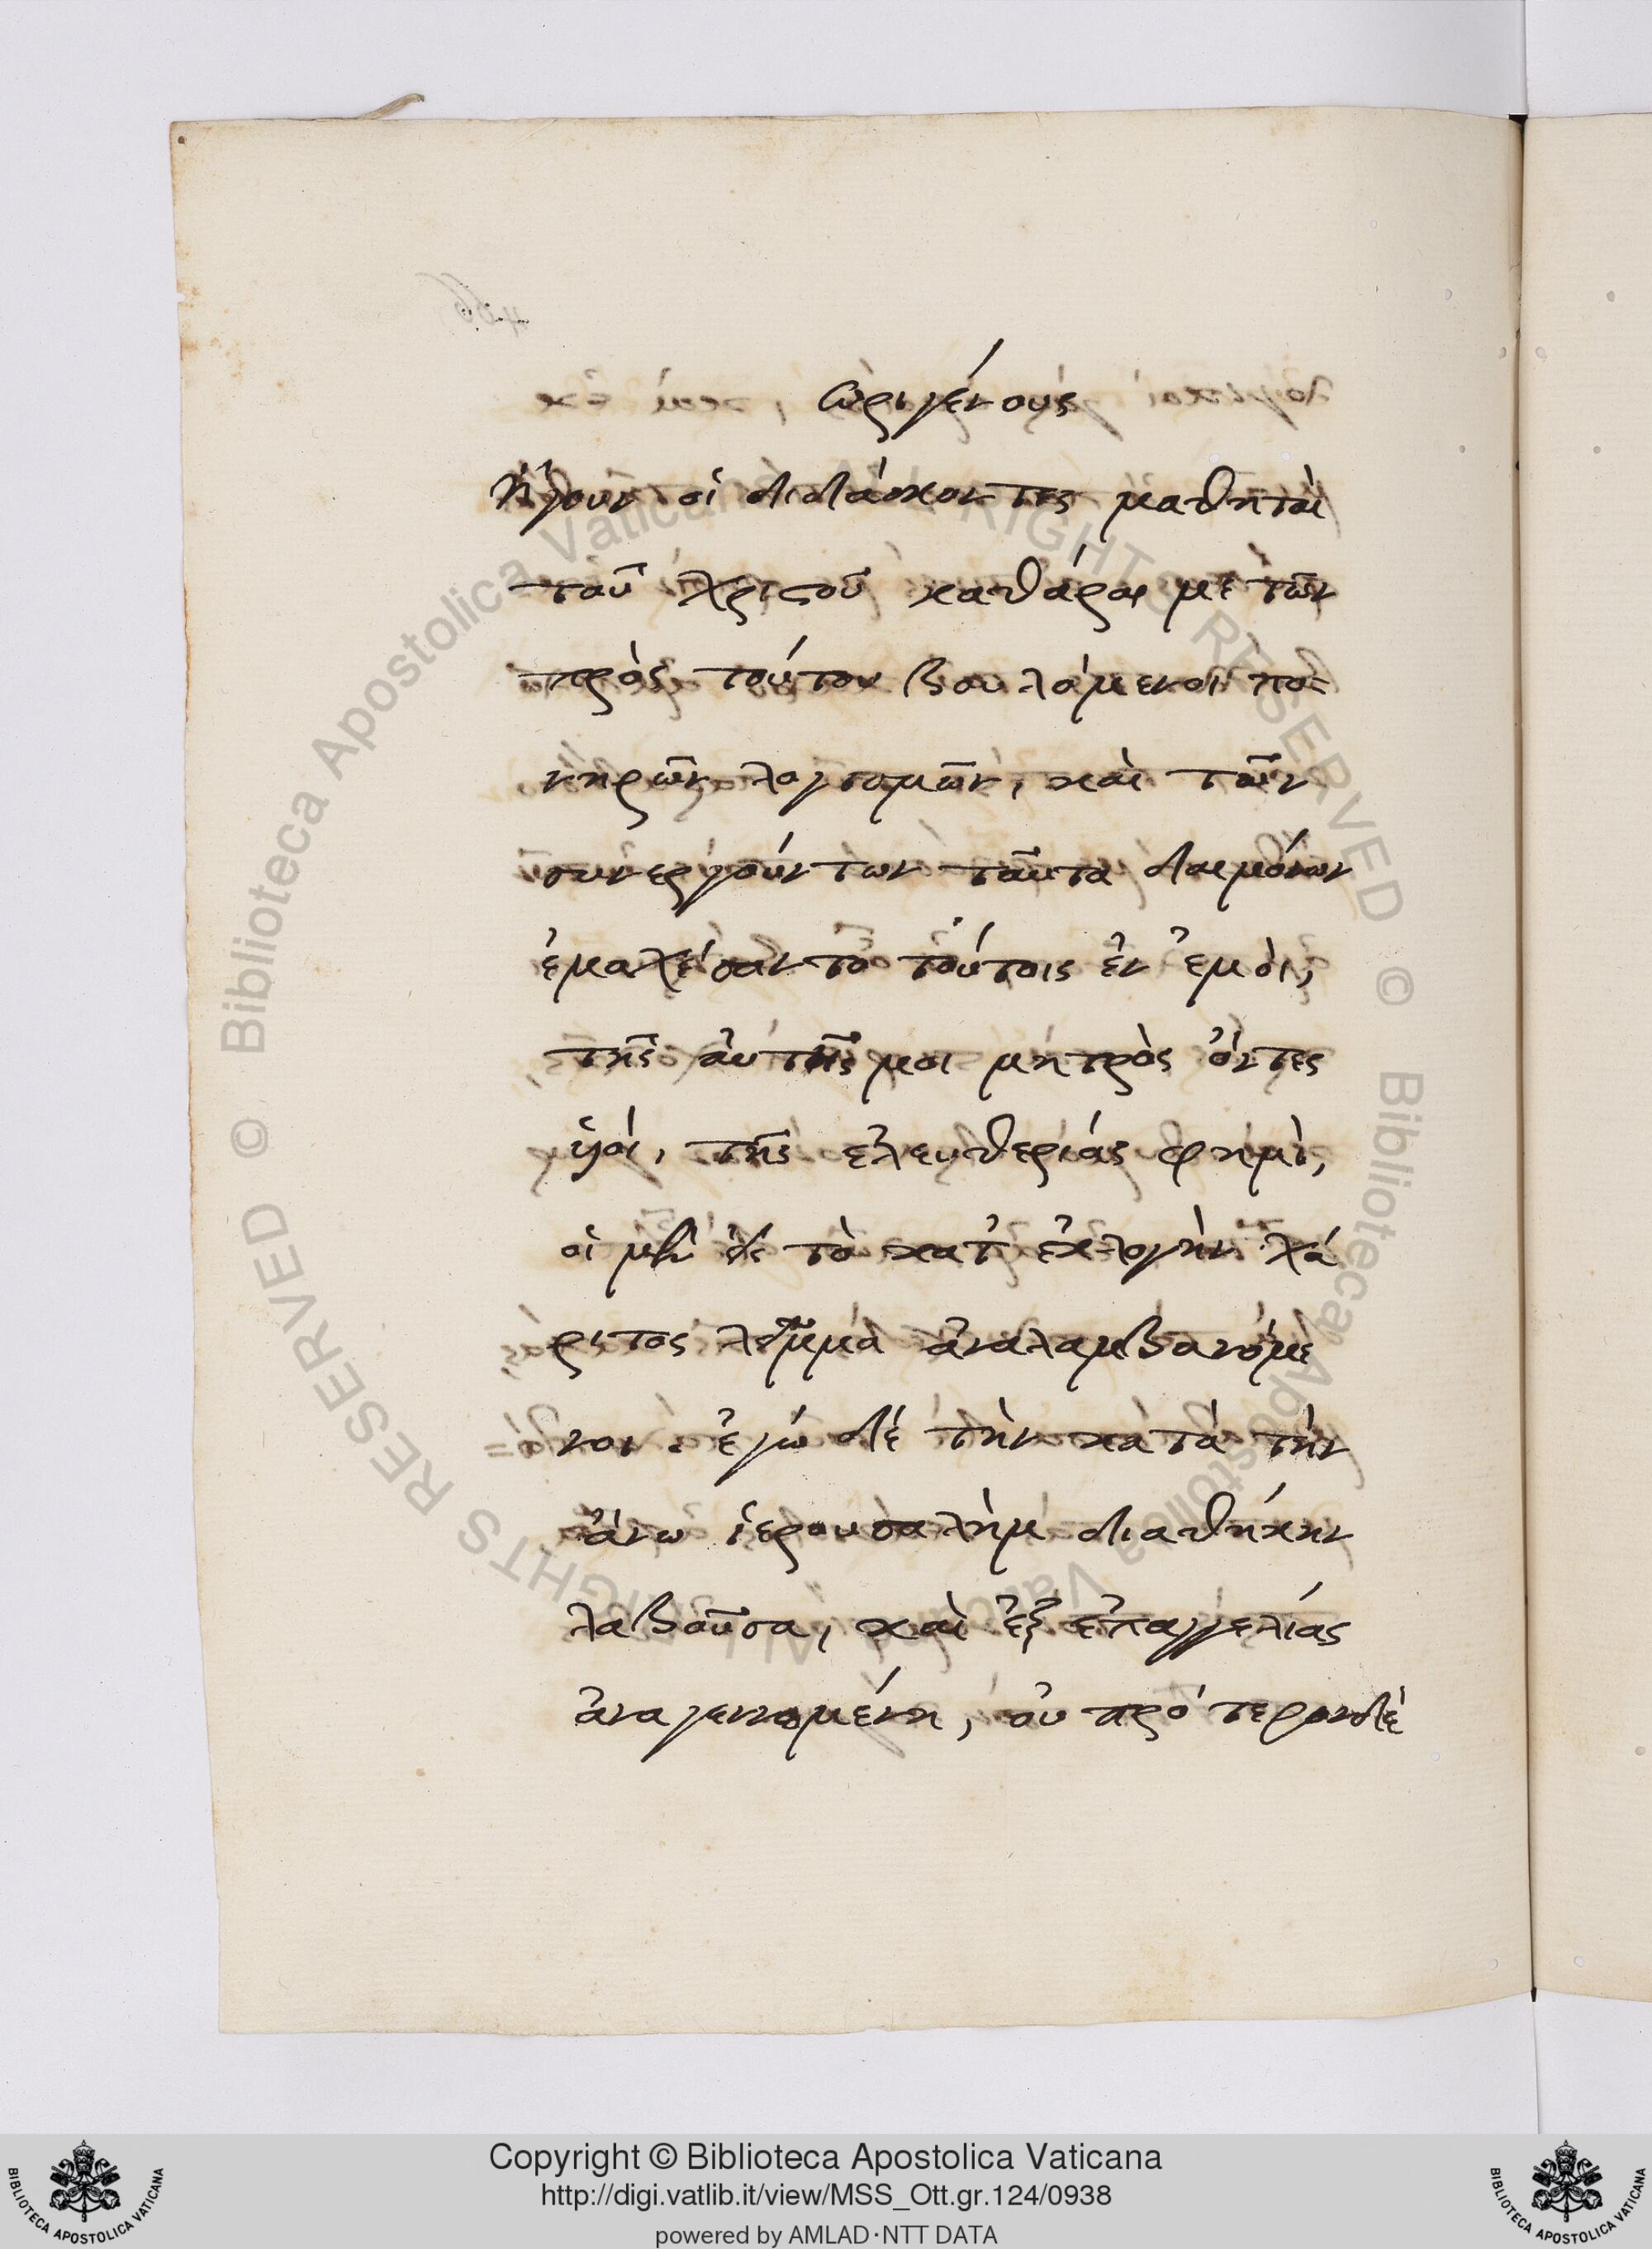 ὠριγένους
ἤγουν οἱ διδάσκοντες μαθηταὶ
τοῦ χριστοῦ καθάραι με τῶν
πρὸς τούτου βουλόμενοι πο-
νηρῶν λογισμῶν, καὶ τῶν
συνεργούντων ταῦτα δαιμόνων
ἐμαχέσαντο τούτοις ἐν ἐμοὶ,
τῆς αὐτῆς μοι μητρὸς ὄντες
ὑοί, τῆς ἐλευθερίας φημὶ,
οἱ μὲν εἰς τὸ κατ' ἐκλογὴν χά
ριτος λεῖμμα ἀναλαμβανόμε
νοι. ἐγὼ δὲ τὴν κατὰ τὴν
ἄνω ἱερουσαλὴμ διαθήκην
λαβοῦσα, καὶ ἐξ ἐπαγγελίας
ἀναγεννομένη, οὐ πρότερον δὲ
Copyright © Biblioteca Apostolica Vaticana
http://digi.vatlib.it/view/MSS_Ott.gr.124/0938
powered by AMLAD·NTT DATA
BIBLIOTECA APOSTOLICA VATICANA
BIBLIOTECA APOSTOLICA VATICANA
© Biblioteca Apostolica Vaticana ALL RIGHTS RESERVED
© Biblioteca Apostolica Vaticana ALL RIGHTS RESERVED